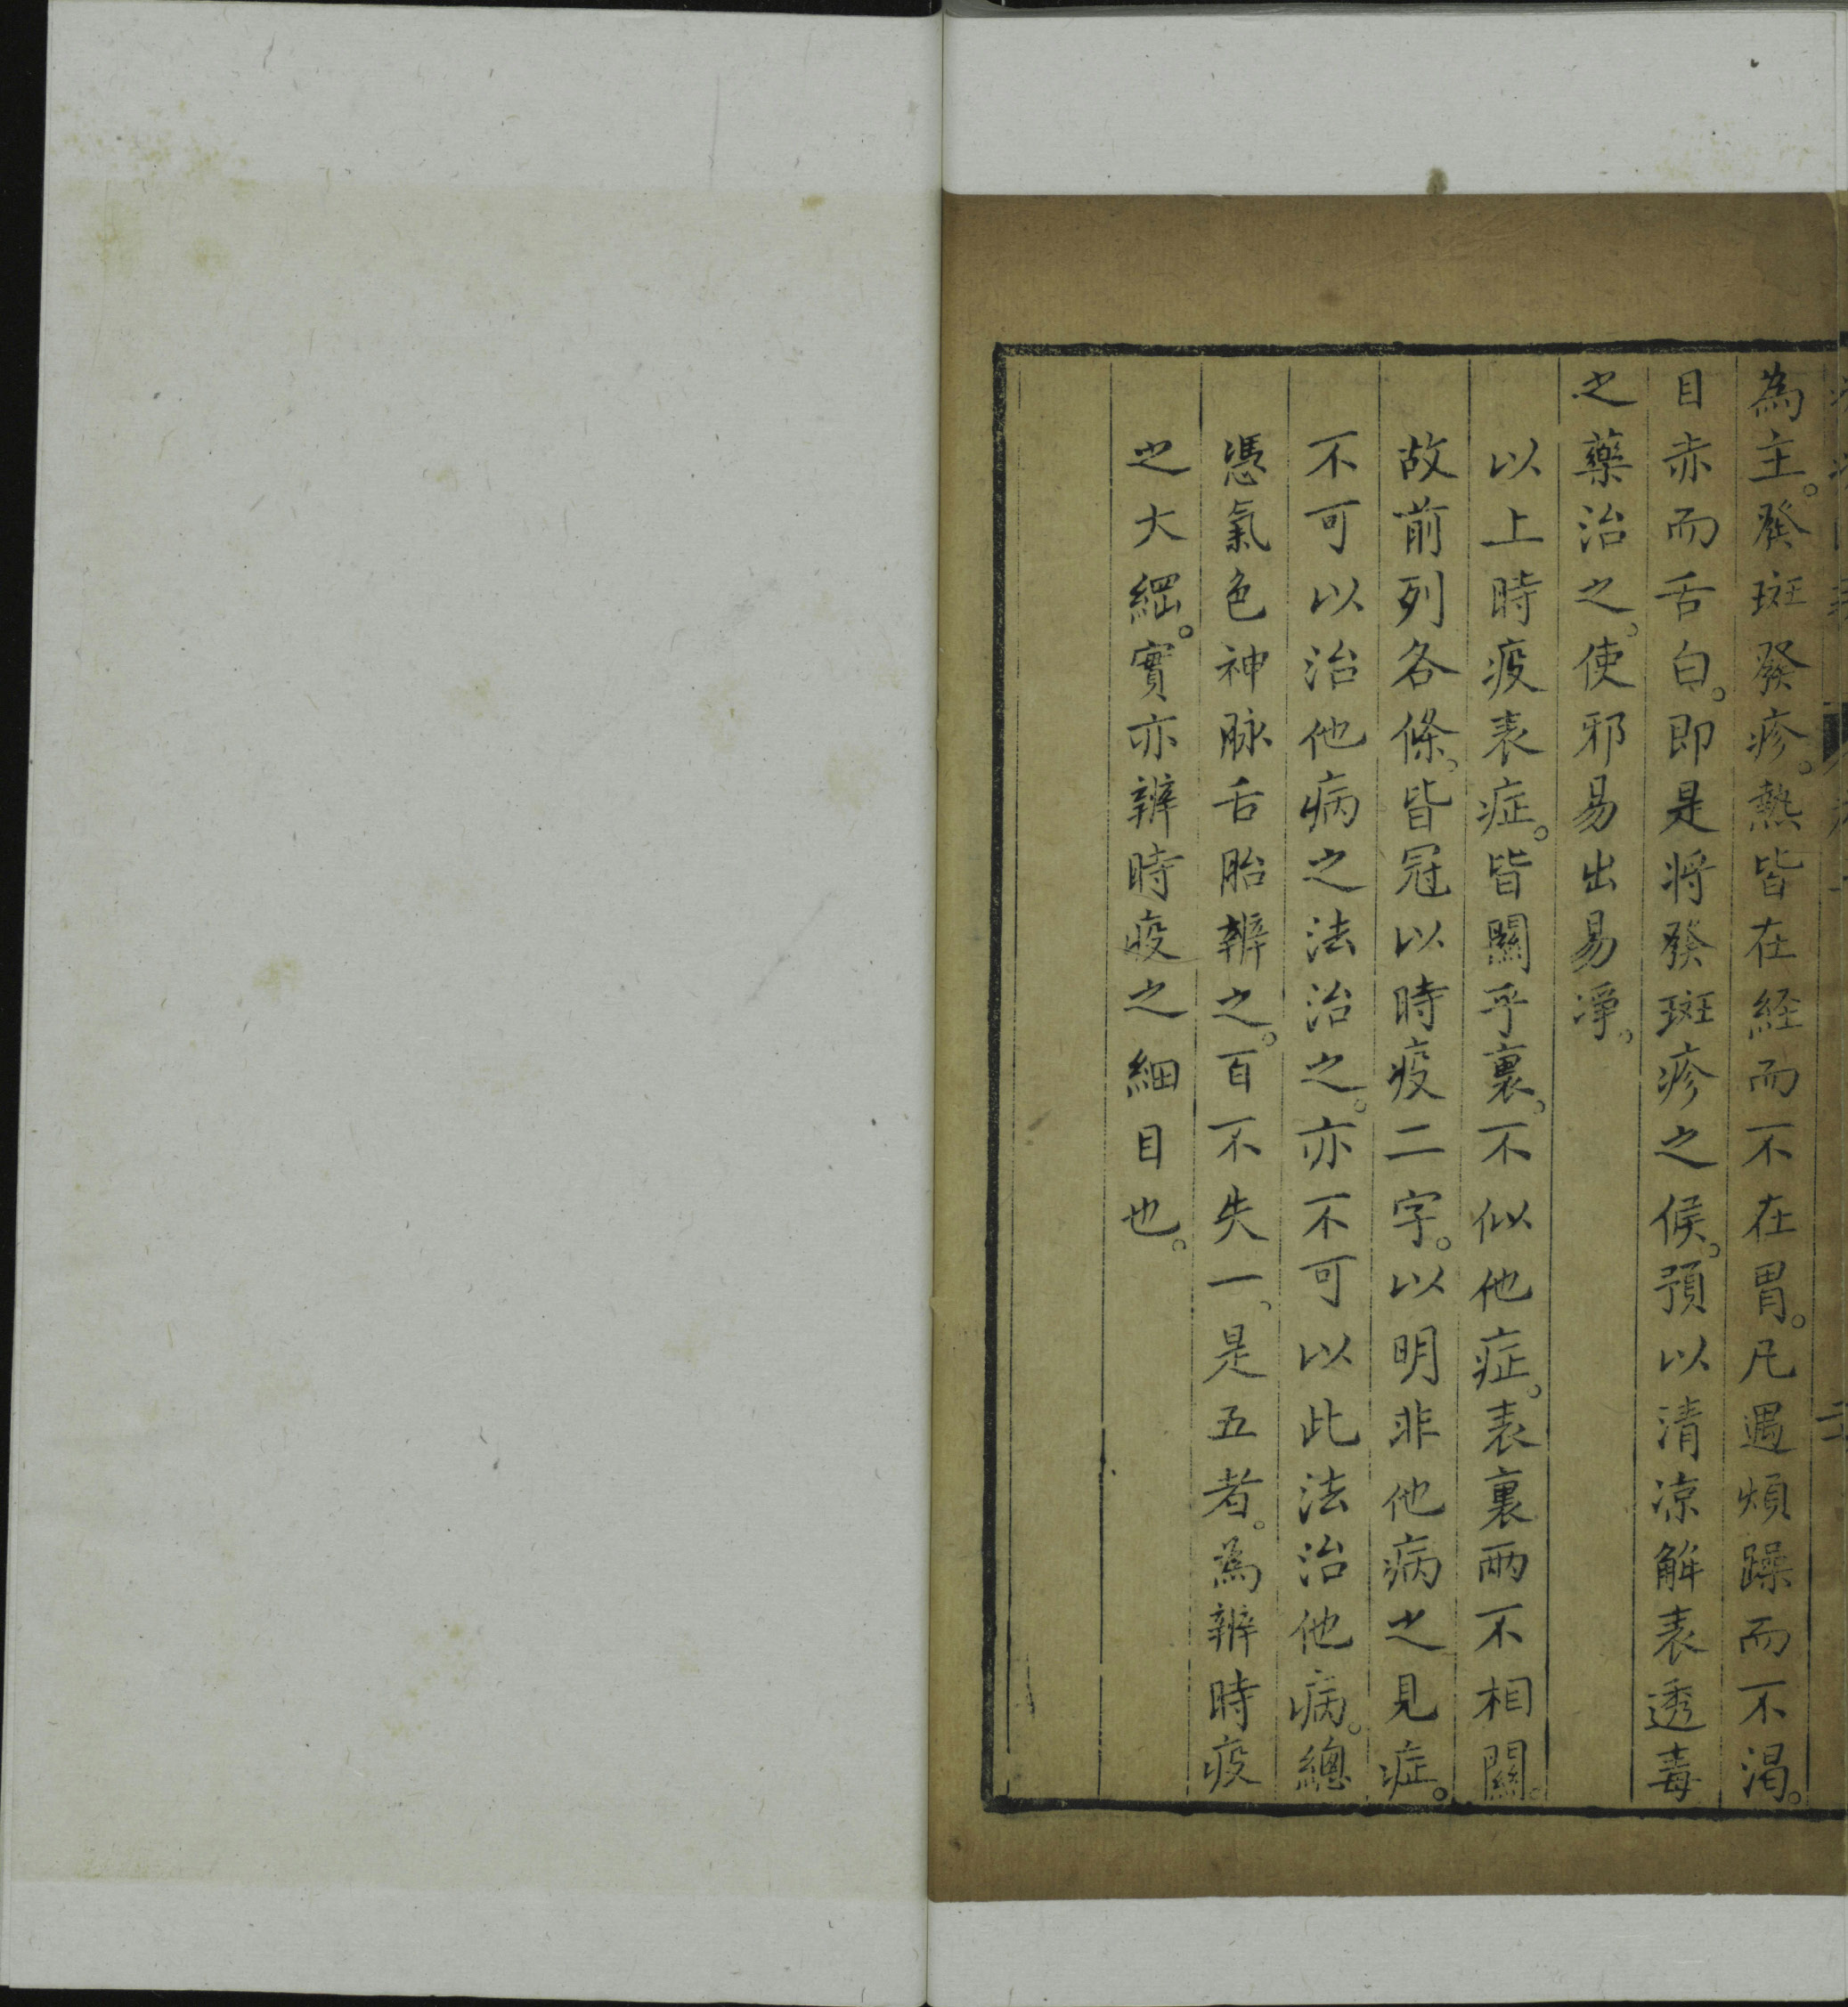 為主。發斑發疹。熱皆在経而不在胃。凡遇煩躁而不渴。
目赤而舌白。即是將發斑疹之候。預以清凉解表透毒
之藥治之。使邪易出易淨。
以上時疫表症。皆關乎裏。不似他症。表裏兩不相關。
故前列各條。皆冠以時疫二字。以明非他病之見症。
不可以治他病之法治之。亦不可以此法治他病。總
憑氣色神脉舌胎辨之。百不失一、是五者。為辨時疫
之大綱。實亦辨時疫之細目也。